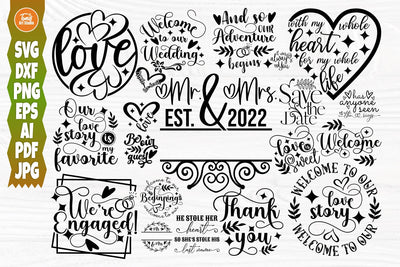 SVG
DXF
PNG
EPS
AI
PDF
JPG
love
Welcome
to our
Wedding
And so
OUR
Adventure
begins
always & forever
with my whole
heart
for my whole
life
Mr. & Mrs.
EST. 2022
Save
the
Date
has
anyone
seen
love
Be our
guest
Our
love
story is
my
favorite
Love is
sweet
Welcome
We're
Engaged!
Beginnings
HE STOLE HER
heart
SO SHE'S STOLE HIS
last name
Thank
you
WELCOME TO OUR
love
story
WELCOME TO OUR